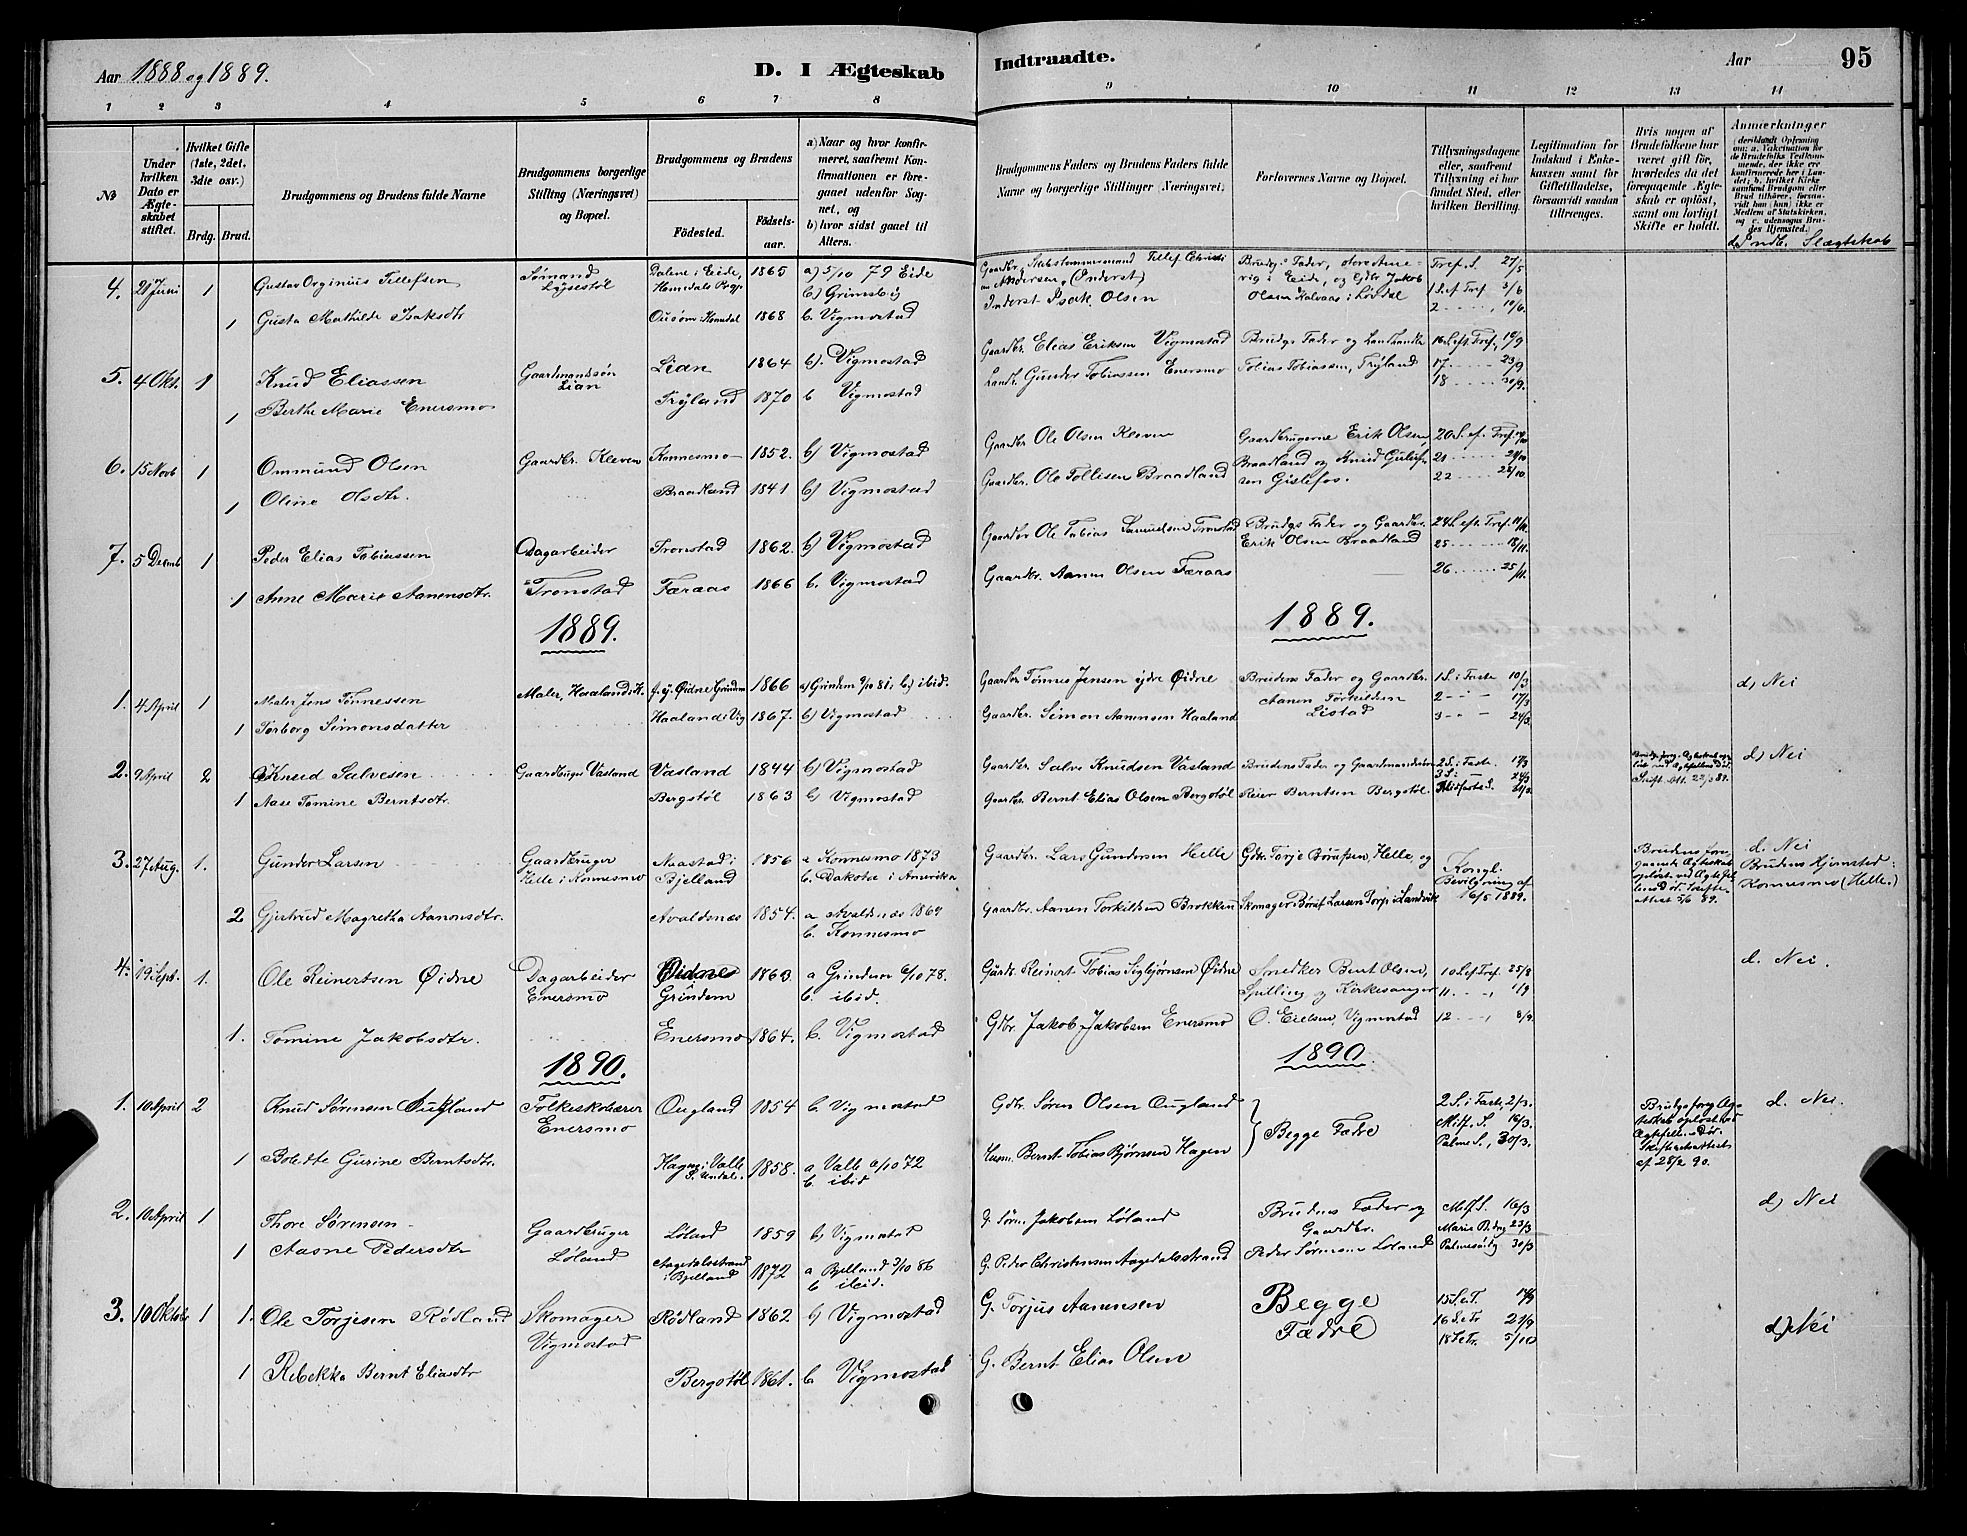 Aar 1888 og 1889.
D. I Ægteskab
Indtraadte.
Aar
95
1 2 3 4 5 6 7 8 9 10 11 12 13 14
No
Under hvilken Dato er Ægteskabet stiftet.
Hvilket Gifte (1ste, 2det, 3die osv.)
Brdg. Brud.
Brudgommens og Brudens fulde Navne
Brudgommens borgerlige Stilling (Næringsvei) og Bopæl.
Brudgommens og Brudens
Födested.
Födselsaar.
a) Naar og hvor konfirmeret, saafremt Konfirmationen er foregaaet udenfor Sognet, og
b) hvor sidst gaaet til Alters.
Brudgommens Faders og Brudens Faders fulde Navne og borgerlige Stillinger (Næringsvei)
Forlovernes Navne og Bopæl.
Tillysningsdagene eller, saafremt Tillysning ei har fundet Sted, efter hvilken Bevilling.
Legitimation for Indskud i Enkekassen samt for Giftetilladelse, forsaavidt saadan tiltrænges.
Hvis nogen af Brudefolkene har været gift før, hvorledes da det foregaaende Ægteskab er oplöst, samt om lovligt Skifte er holdt.
Anmærkninger
d. Indb. Slægtskab
4. 21 Juni 1 Gustav Orginius Tellefsen Sømand Lysestøl Dalene i Eide, Homedals Prgj. 1865 a) 5/10 79 Eide b) Grimsby
Tellef Christian Andersen (Inderst) Tref. S. 27/5
1 Gusta Mathilde Isaksdtr 1868 b. Vigmostad Inderst Isak Olsen Olsen Kalvaas i Løddal 1 S ef Tref 3/6
2 10/6
5. 4 Okt. 1 Knud Eliassen Gaardmandssøn Lian Lian 1864 b). Vigmostad Gaardbr. Elias Eriksen Vigmostad Brudgs Fader og Landhandler 16 S eft Tref. 16/9
1 Berthe Marie Enersmo Tryland 1870 b Vigmostad Landh. Gunder Tobiassen Enersmo Tobias Tobiassen, Tryland 17 23/9
18 30/9.
6. 15 Novb 1 Ommund Olsen Gaardbr. Kleven Konnesmo 1852. b) Vigmostad Gaardbr Ole Olsen Kleven Gaardbrugerne Erik Olsen, Braadland og Knud Gulufsen Gislefos. 20 S. ef. Tref. 14/10
1 Oline Olsdtr. Braadland 1841 b) Vigmostad Gaardbr. Ole Tollisen Braadland 21 21/10
22 28/10
7. 5 Decmb 1 Peder Elias Tobiassen Dagarbeider Tronstad Tronstad 1862. b) Vigmostad Gaardbr Ole Tobias Samuelsen Tronstad Brudgs Fader og Gaardbr. Erik Olsen Braadland 24 S eft. Tref. 11/11
1 Anne Marie Aanensdtr. Færaas 1866 b. Vigmostad Gaardbr. Aanen Olsen Færaas 25 18/11.
26 25/11.
1889.
1889.
1. 4 April 1 Maler Jens Tønnessen Maler, Haaland i V. Øidne Grindem 1866 a) Grindem 2/10 81, b) ibid. Gaardbr Tønnes Jensen ydre Øidne Brudens Fader og Gaardbr. Aanen Torkildsen Listad 1 S. i Faste 10/3 d) Nei
1 Torborg Simonsdatter Haaland i Vig 1867. b) Vigmostad Gaardbr. Simon Aanensen Haaland 2 17/3
3 24/3
2. 9 April 2 Knud Salvesen Gaardbruger Vasland Vasland 1844 b) Vigmostad Gaardbr. Salve Knudsen Vasland Brudens Fader og Gaardmandssøn Reier Berntsen Bergstøl. 2 S. i Faste. 17/3 d) Nei
1 Aase Tomine Berntsdtr. Bergstøl 1863 b) Vigmostad Gaardbr. Bernt Elias Olsen Bergstøl 3 S. i 24/3
Skift. Att. 22/3 89.
3. 27 Aug. 1. Gunder Larsen Gaardbruger Helle i Konnesmo Naastad i Bjelland 1856 a Konnesmo 1873 b. Dakota i Amerika Gaardbr. Lars Gundersen Helle Gdbr. Torje Børufsen, Helle, og Kongl. Bevilgning af 16/5 1889. Brudens foregaaende Ægteskab opløst ved Ægtefellens Død. Skifteattest 5/6 89. d. Nei Brudens Hjemsted: Konnesmo (Helle.)
2 Gjertrud Magretha Aanensdtr. Avaldsnes 1854. a Avaldsnæs 1869 b. Konnesmo Gaardbr. Aanen Torkildsen Brokken Skomager Børuf Larsen Torp i Landvik
4. 19 Sept. 1. Ole Reinertsen Øidne Dagarbeider Enersmo Øidne Grindem 1863. a Grindem 6/10 78. b. ibid. Gdbr. Reinert Tobias Sigbjørnsen Øidne Snedker Bent Olsen, Spilling og Kirkesanger O. Eielsen, Vigmostad 10 S ef Tref. 25/8 d. Nei.
1. Tomine Jakobsdtr. Enersmo 1864. b. Vigmostad Gdbr. Jakob Jakobsen Enersmo 11 1/9
12 8/9.
1890.
1890.
1. 10 April 2 Knud Sørensen Ougland Folkeskolærer Enersmo Ougland 1854 b. Vigmostad Gdbr. Søren Olsen Ougland Begge Fædre 2 S. i Faste, 2/3. Brudgs foreg. Ægteskab opløst ved Ægtefell. Død. Skifteretsattest af 28/2 90. d. Nei.
1 Boledte Gusine Berntsdtr. Hagen i Valle S. Undal. 1858. a Valle 6/10 72 b. ibid Husm. Bernt Tobias Bjørnsen Hagen Midf. S. 16/3.
Palme S., 30/3.
2. 10 April 1 Thore Sørensen Gaardbruger Løland Løland 1859 b) Vigmostad G. Søren Jakobsen Løland Brudens Fader og Gaardbr. Peder Sørensen Løland Midf. S. 16/3 d) Nei
1 Aasne Pedersdtr Aagedalsstrand i Bjelland 1872 a Bjelland 3/10 86 b ibid. G. Peder Christensen Aagedalsstrand Marie B.dag 23/3
Palmesøndg 30/3
3. 10 Oktob 1 1. Ole Torjesen Rødland Skomager Vigmostad Rødland 1862 b) Vigmostad G. Torjus Aanensen Begge Fædre 15 S.e.T. d) Nei
1 Rebekka Bernt Eliasdtr Bergstøl 1861. b Vigmostad G. Bernt Elias Olsen 16 S e Tr 21/9
18 S e Tr. 5/10